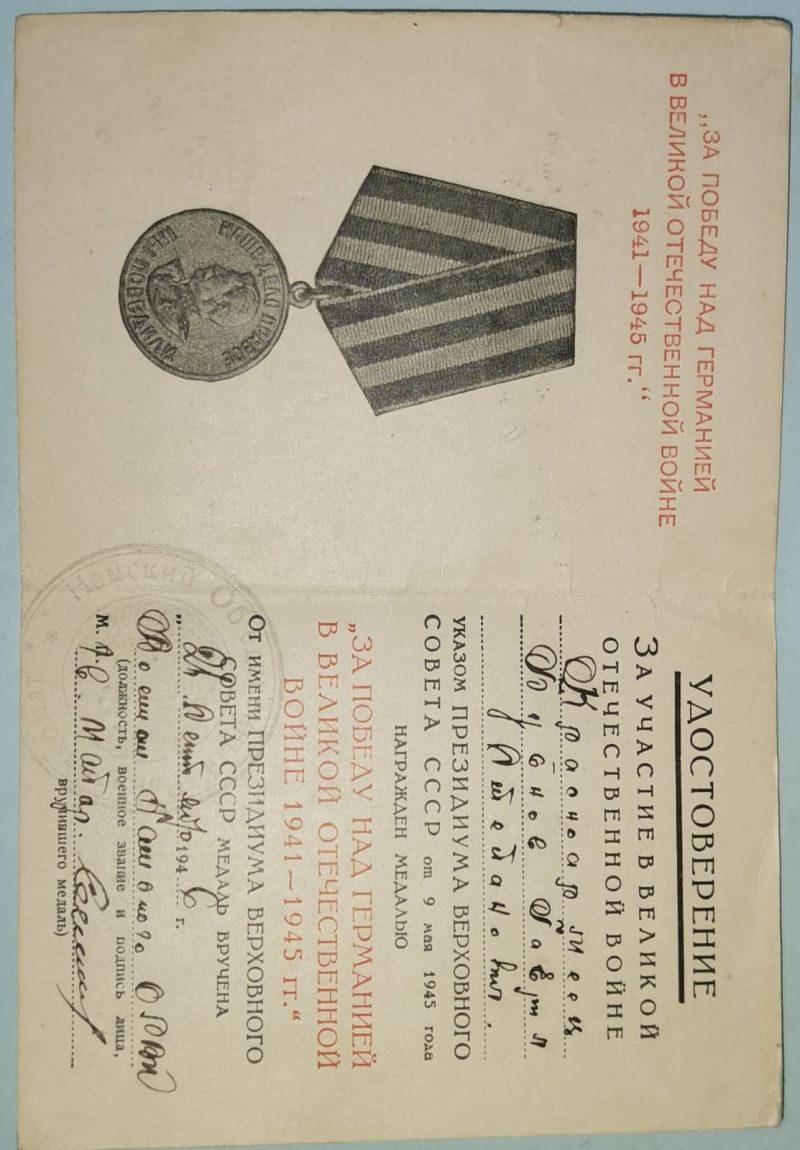 „ЗА ПОБЕДУ НАД ГЕРМАНИЕЙ
В ВЕЛИКОЙ ОТЕЧЕСТВЕННОЙ ВОЙНЕ
1941—1945 гг.“
НАШЕ ДЕЛО ПРАВОЕ
МЫ ПОБЕДИЛИ
УДОСТОВЕРЕНИЕ
ЗА УЧАСТИЕ В ВЕЛИКОЙ
ОТЕЧЕСТВЕННОЙ ВОЙНЕ
Красноармеец
УКАЗОМ ПРЕЗИДИУМА ВЕРХОВНОГО
СОВЕТА СССР от 9 мая 1945 года
НАГРАЖДЕН МЕДАЛЬЮ
„ЗА ПОБЕДУ НАД ГЕРМАНИЕЙ
В ВЕЛИКОЙ ОТЕЧЕСТВЕННОЙ
ВОЙНЕ 1941—1945 гг.“
ОТ ИМЕНИ ПРЕЗИДИУМА ВЕРХОВНОГО
СОВЕТА СССР МЕДАЛЬ ВРУЧЕНА
194 6 г.
Военком Намского
(должность, военное звание и подпись лица,
М. П.
вручившего медаль)
Намский Об